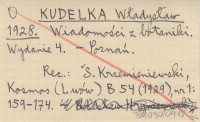 O KUDELKA Władysław
1928. Wiadomości z botaniki.
Wydanie 4. – Poznań.
Rec.: S. Krzemieniewski,
Kosmos (Lwów) B 54 (1929), nr 1:
159–174.